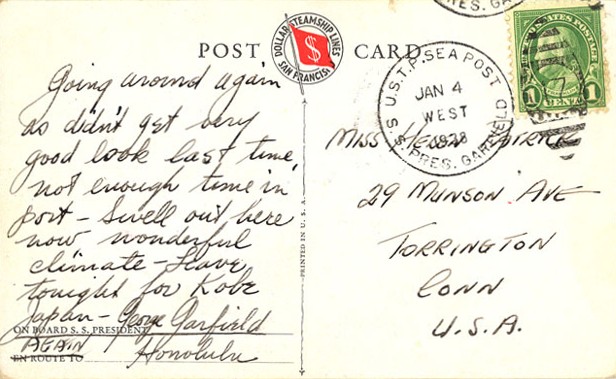 POST CARD
DOLLAR STEAMSHIP LINES
$
SAN FRANCISCO
Going around again
as didn't get very
good look last time,
not enough time in
port - Swell out here
now wonderful
climate - Leave
tonight for Kobe
Japan - George
ON BOARD S. S. PRESIDENT Garfield
AGAIN Honolulu
EN ROUTE TO
PRINTED IN U. S. A.
S. PRES. GA
U.S.T.P. SEA POST
JAN 4
WEST
1928
S.S. PRES. GARFIELD
UNITED STATES POSTAGE
1 CENT 1
MISS HELEN
29 MUNSON AVE
TORRINGTON
CONN
U.S.A.